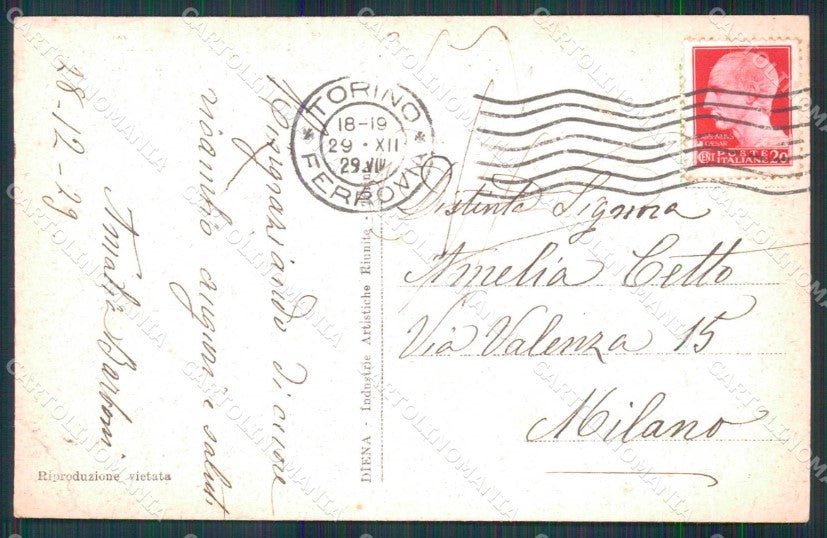 28-12-29
Ringraziando di cuore
ricambio auguri e saluti
Amalia Barboni
Riproduzione vietata
DIENA - Industrie Artistiche Riunite -
TORINO
18-19
29 · XII
29. VIII
FERROVIA
IVLIVS
CAESAR
POSTE
CENT ITALIANE 20
Distinta Signora
Amelia Cetto
Via Valenza 15
Milano
CARTOLINOMANIA